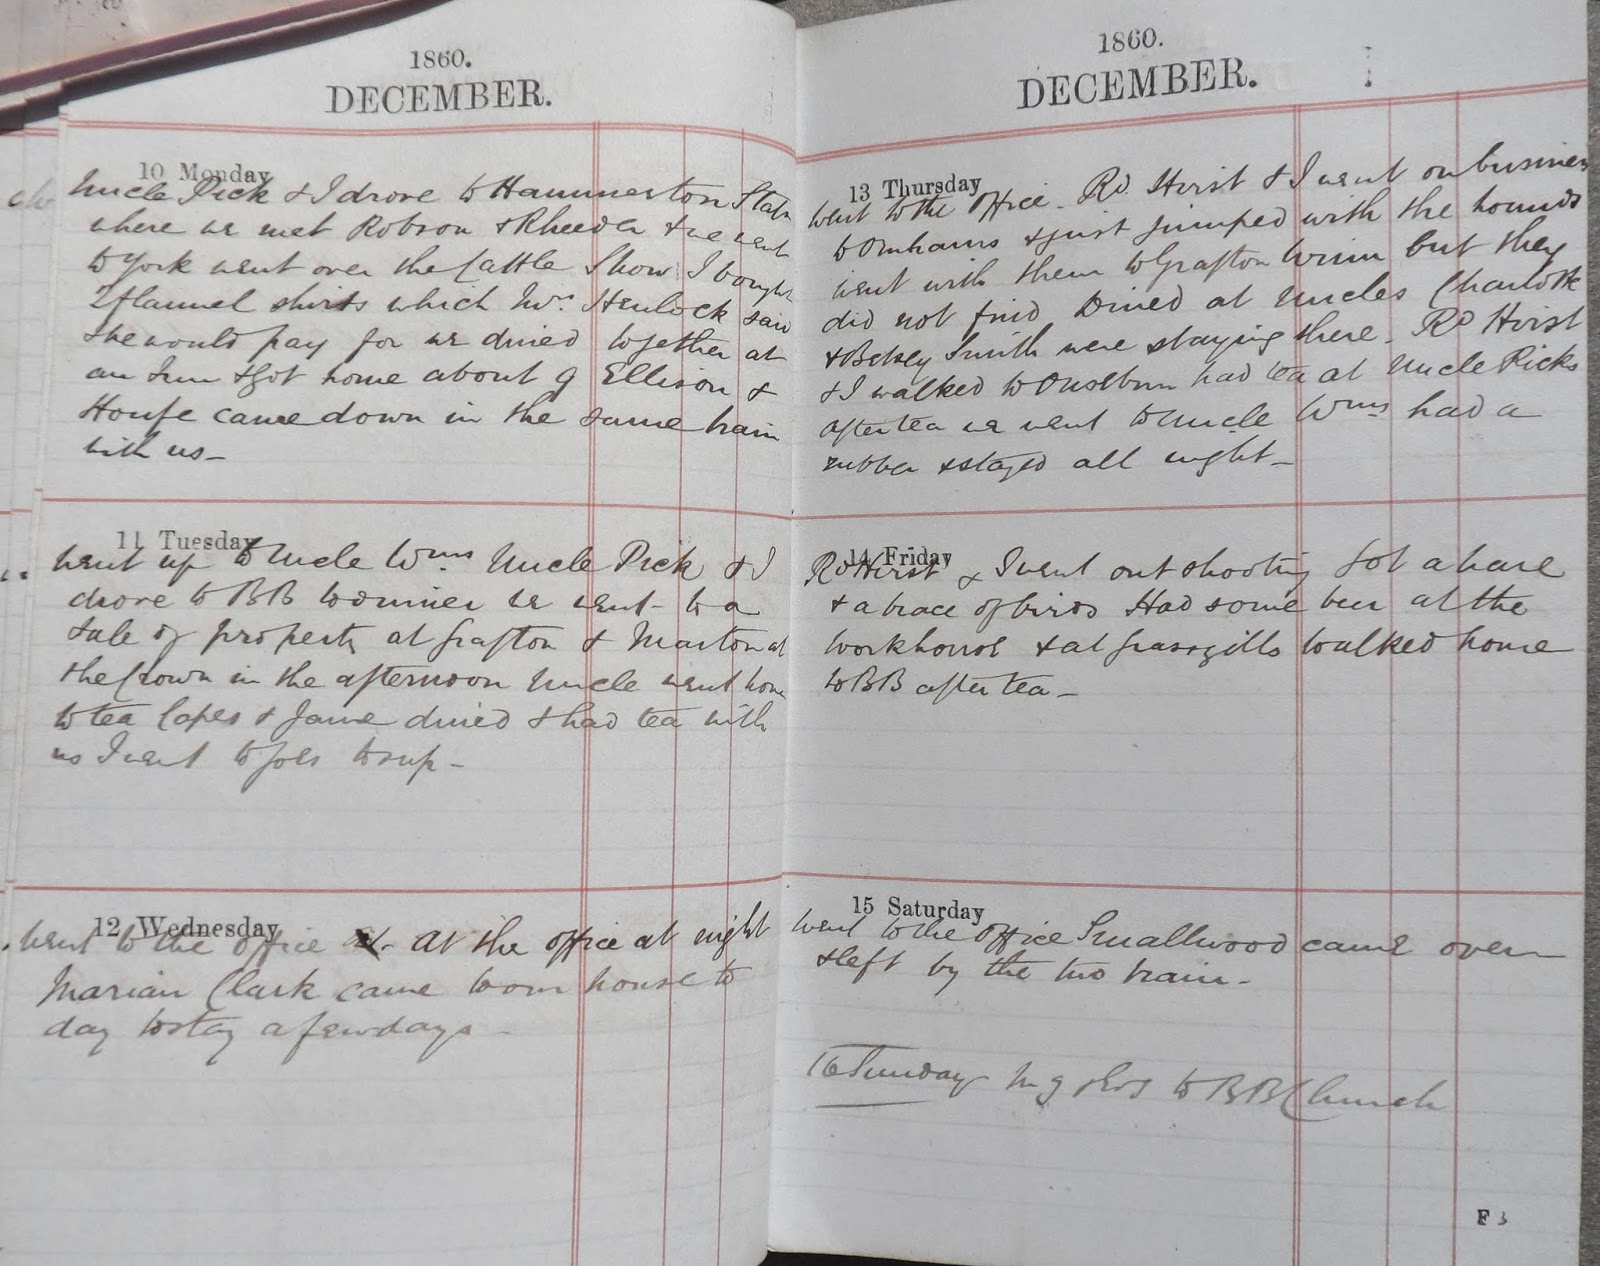 1860.
DECEMBER.
10 Monday
Uncle Dick & I drove to Hammerton Statn
where we met Robson & Rheeder & we went
to York went over the Cattle Show I bought
2 flannel shirts which Mrs. Henlock said
she would pay for we dined together at
an Inn & got home about 9 Ellison &
House came down in the same train
with us—
11 Tuesday
Went up to Uncle Wms Uncle Dick & I
drove to BB to dinner we went to a
sale of property at Grafton & Marton at
the Crown in the afternoon Uncle went home
to tea Capes & Jane dined & had tea with
us I went to Joes to sup—
12 Wednesday
Went to the office at the office at night
Marian Clark came to our house to
day to stay a few days—
1860.
DECEMBER.
13 Thursday
Went to the office. Rd. Hirst & I went on business
to & just jumped with the hounds
went with them to Grafton Whin but they
did not find Dined at Uncles Charlotte
& Betsey Smith were staying there. Rd Hirst
& I walked to Ouseburn had tea at Uncle Dicks
after tea we went to Uncle Wms had a
rubber & stayed all night—
14 Friday
Rd Hirst & I went out shooting Got a hare
& a brace of birds Had some beer at the
workhouse & at Grassgills walked home
to BB after tea—
15 Saturday
Went to the office Smallwood came over
& left by the two train.
16 Sunday to BB Church
F 3